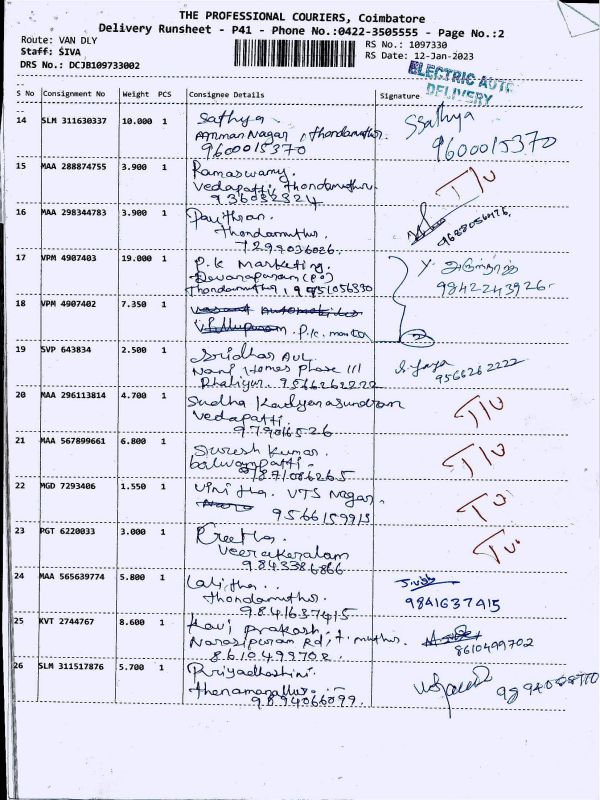 THE PROFESSIONAL COURIERS, Coimbatore
Delivery Runsheet - P41 - Phone No.:0422-3505555 - Page No.:2
Route: VAN DLY
RS No.: 1097330
Staff: SIVA
RS Date: 12-Jan-2023
DRS No.: DCJB109733002
ELECTRIC AUTO
DELIVERY
S No Consignment No Weight PCS Consignee Details Signature
14 SLM 311630337 10.000 1 Sathya Ssathya
Amman Nagar, thondamuthur.
9600015370 9600015370
15 MAA 288874755 3.900 1 Ramaswamy.
Vedapatti, thondamuthur.
936032324
16 MAA 298344783 3.900 1
thondamuthur.
7299036026.
17 VPM 4907403 19.000 1 P.K Marketing. Y. அருள்ராஜ்
Devarayapuram (PO) 9842243926
Thondamuthur, 9951056330
18 VPM 4907402 7.350 1
P.K. 
19 SVP 643834 2.500 1 Sridhar S. Jaya
Nanj Homes Phase III 9566262222
9566262222
20 MAA 296113814 4.700 1 Sudha Kalyanasundram
Vedapatti.
21 MAA 567899661 6.800 1 Suresh Kumar.
22 MGD 7293406 1.550 1 Vinitha. VTS Nagar.
9566159915
23 PGT 6220033 3.000 1 Preetha.
Veerakeralam
9843386866
24 MAA 565639774 5.800 1 Lalitha..
thondamuthur. 9841637415
9841637415
25 KVT 2744767 8.600 1 Kavi Prakash.
Narasipuram Rd, t. muthur.
8610499702. 8610499702
26 SLM 311517876 5.700 1 Priyadharshini.
9894066099.